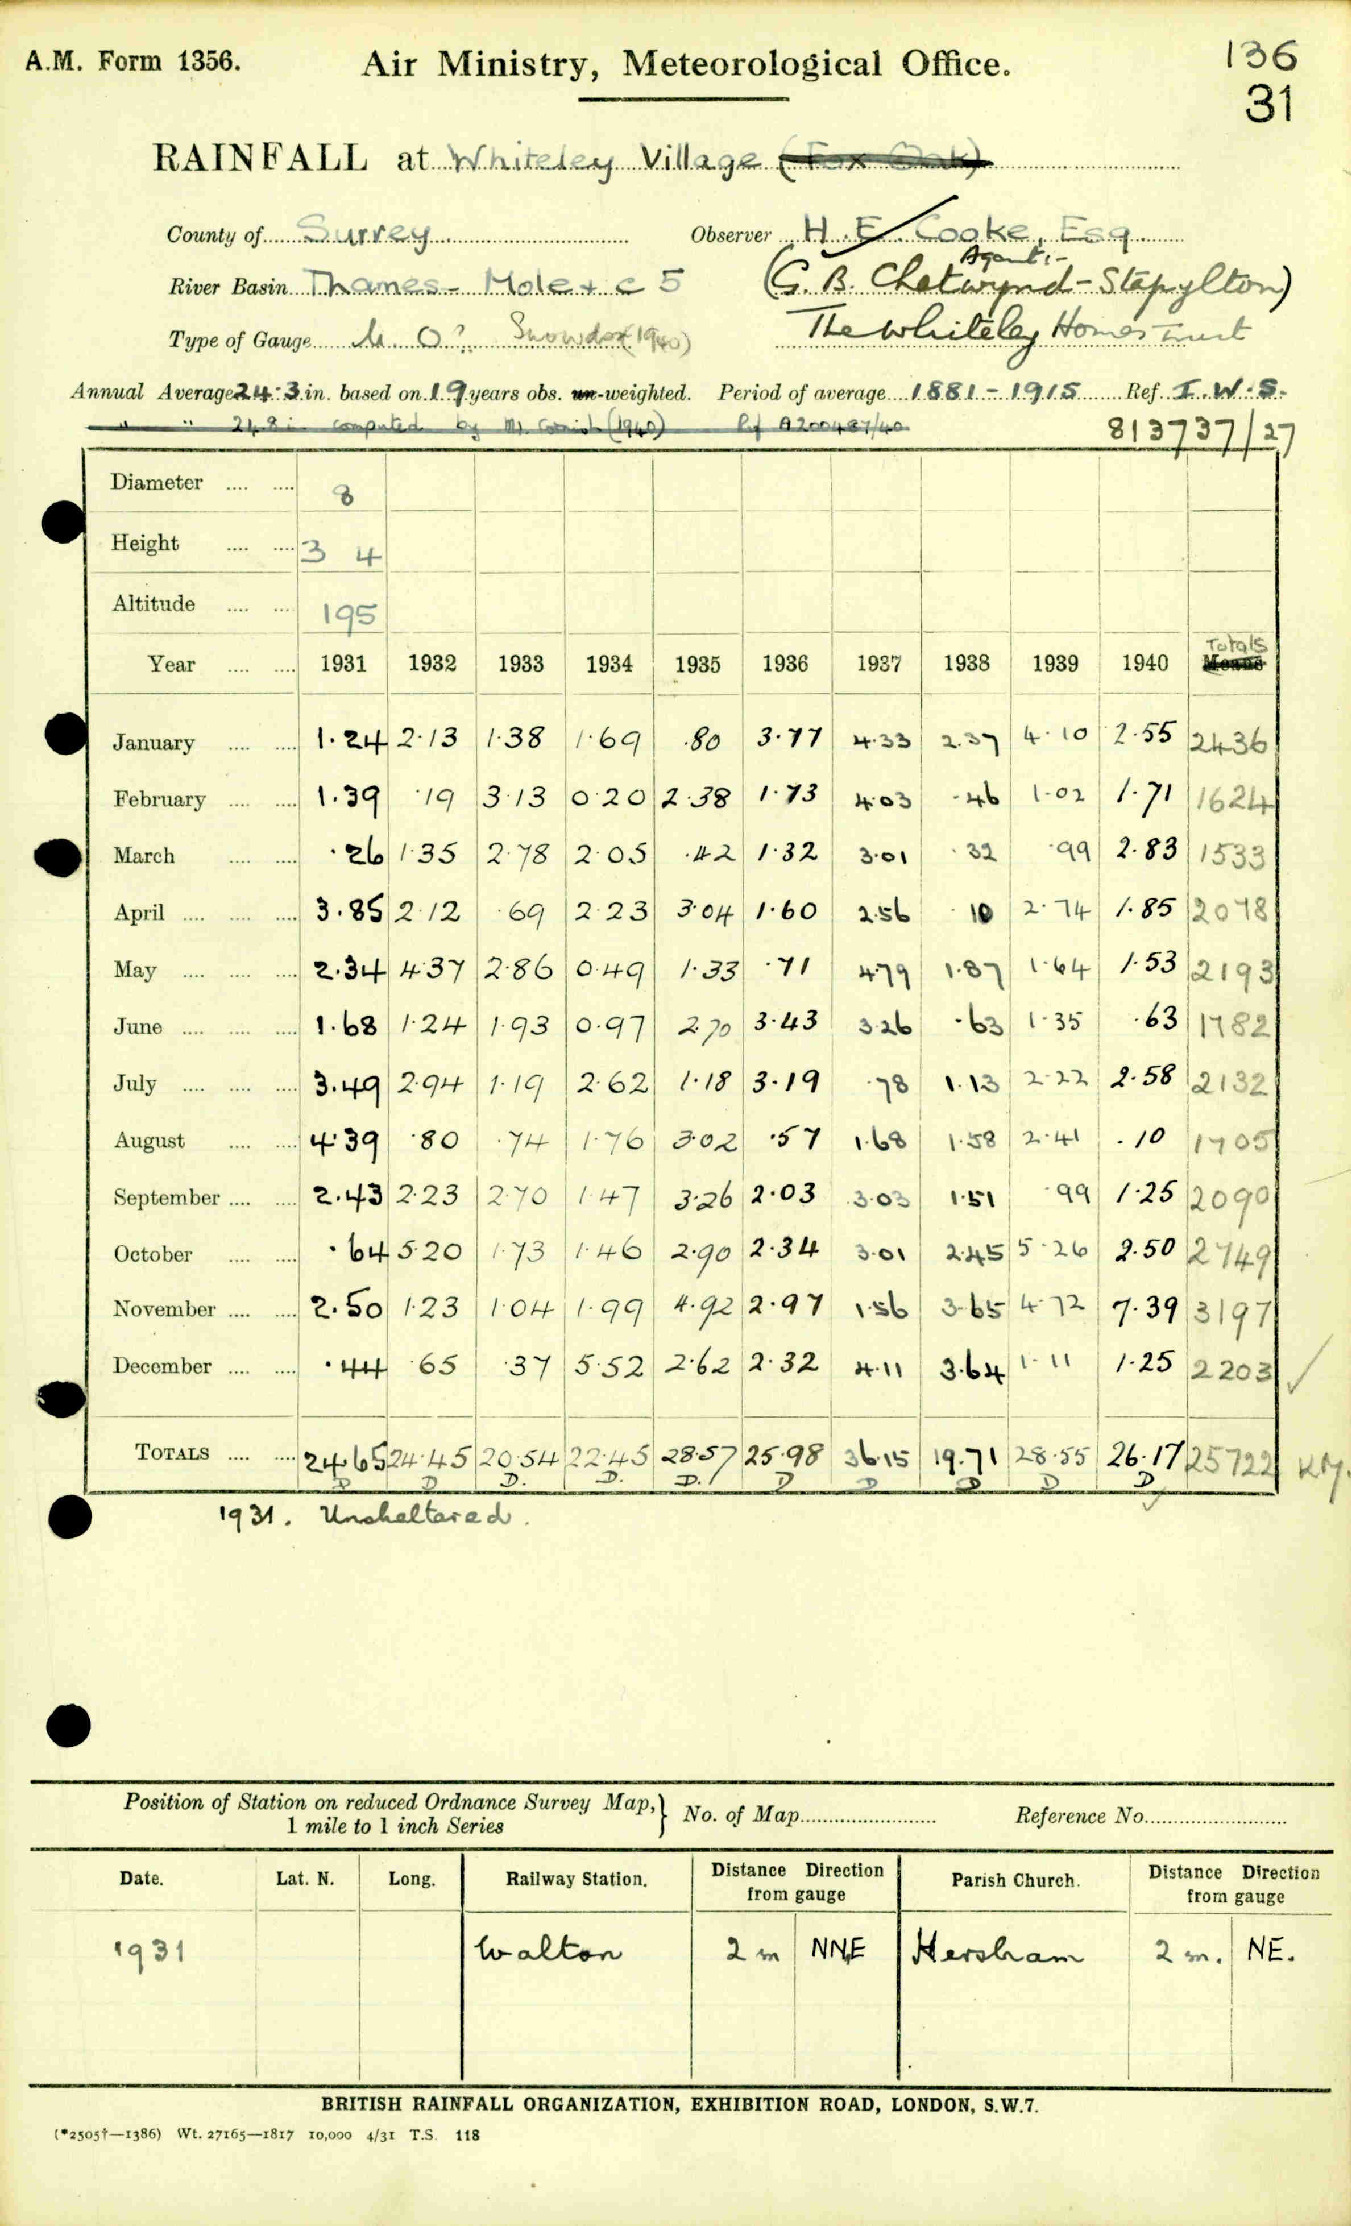 A.M. Form 1356.
Air Ministry, Meteorological Office.
136
31
RAINFALL at Whiteley Village (Fox Oak)
County of Surrey Observer H. E. Cooke, Esq
Agent:-
River Basin Thames - Mole + c 5 (G. B. Chetwynd-Stapylton)
Type of Gauge M. O? Snowdon (1940) The Whiteley Homes Trust
Annual Average 24.3 in. based on 19 years obs. un-weighted. Period of average 1881-1915 Ref. I.W.S.
" " 24.8 in computed by Mr. Cornish (1940) Ref A200487/40
813737/27
Diameter 8
Height 3 4
Altitude 195
Totals
Year 1931 1932 1933 1934 1935 1936 1937 1938 1939 1940 Means
January 1.24 2.13 1.38 1.69 .80 3.77 4.33 2.37 4.10 2.55 2436
February 1.39 .19 3.13 0.20 2.38 1.73 4.03 .46 1.02 1.71 1624
March .26 1.35 2.78 2.05 .42 1.32 3.01 .32 .99 2.83 1533
April 3.85 2.12 .69 2.23 3.04 1.60 2.56 .10 2.74 1.85 2078
May 2.34 4.37 2.86 0.49 1.33 .71 4.79 1.87 1.64 1.53 2193
June 1.68 1.24 1.93 0.97 2.70 3.43 3.26 .63 1.35 .63 1782
July 3.49 2.94 1.19 2.62 1.18 3.19 .78 1.13 2.22 2.58 2132
August 4.39 .80 .74 1.76 3.02 .57 1.68 1.58 2.41 .10 1705
September 2.43 2.23 2.70 1.47 3.26 2.03 3.03 1.51 .99 1.25 2090
October .64 5.20 1.73 1.46 2.90 2.34 3.01 2.45 5.26 2.50 2749
November 2.50 1.23 1.04 1.99 4.92 2.97 1.56 3.65 4.72 7.39 3197
December .44 .65 .37 5.52 2.62 2.32 4.11 3.64 1.11 1.25 2203
TOTALS 24.65 24.45 20.54 22.45 28.57 25.98 36.15 19.71 28.55 26.17 25722
D D D. D. D. D D D D D
1931. Unsheltered.
Position of Station on reduced Ordnance Survey Map, 1 mile to 1 inch Series } No. of Map Reference No.
Date. Lat. N. Long. Railway Station. Distance Direction from gauge Parish Church. Distance Direction from gauge
1931 Walton 2 m NNE Hersham 2 m. NE.
BRITISH RAINFALL ORGANIZATION, EXHIBITION ROAD, LONDON, S.W.7.
(*2505†—1386) Wt. 27165—1817 10,000 4/31 T.S. 118